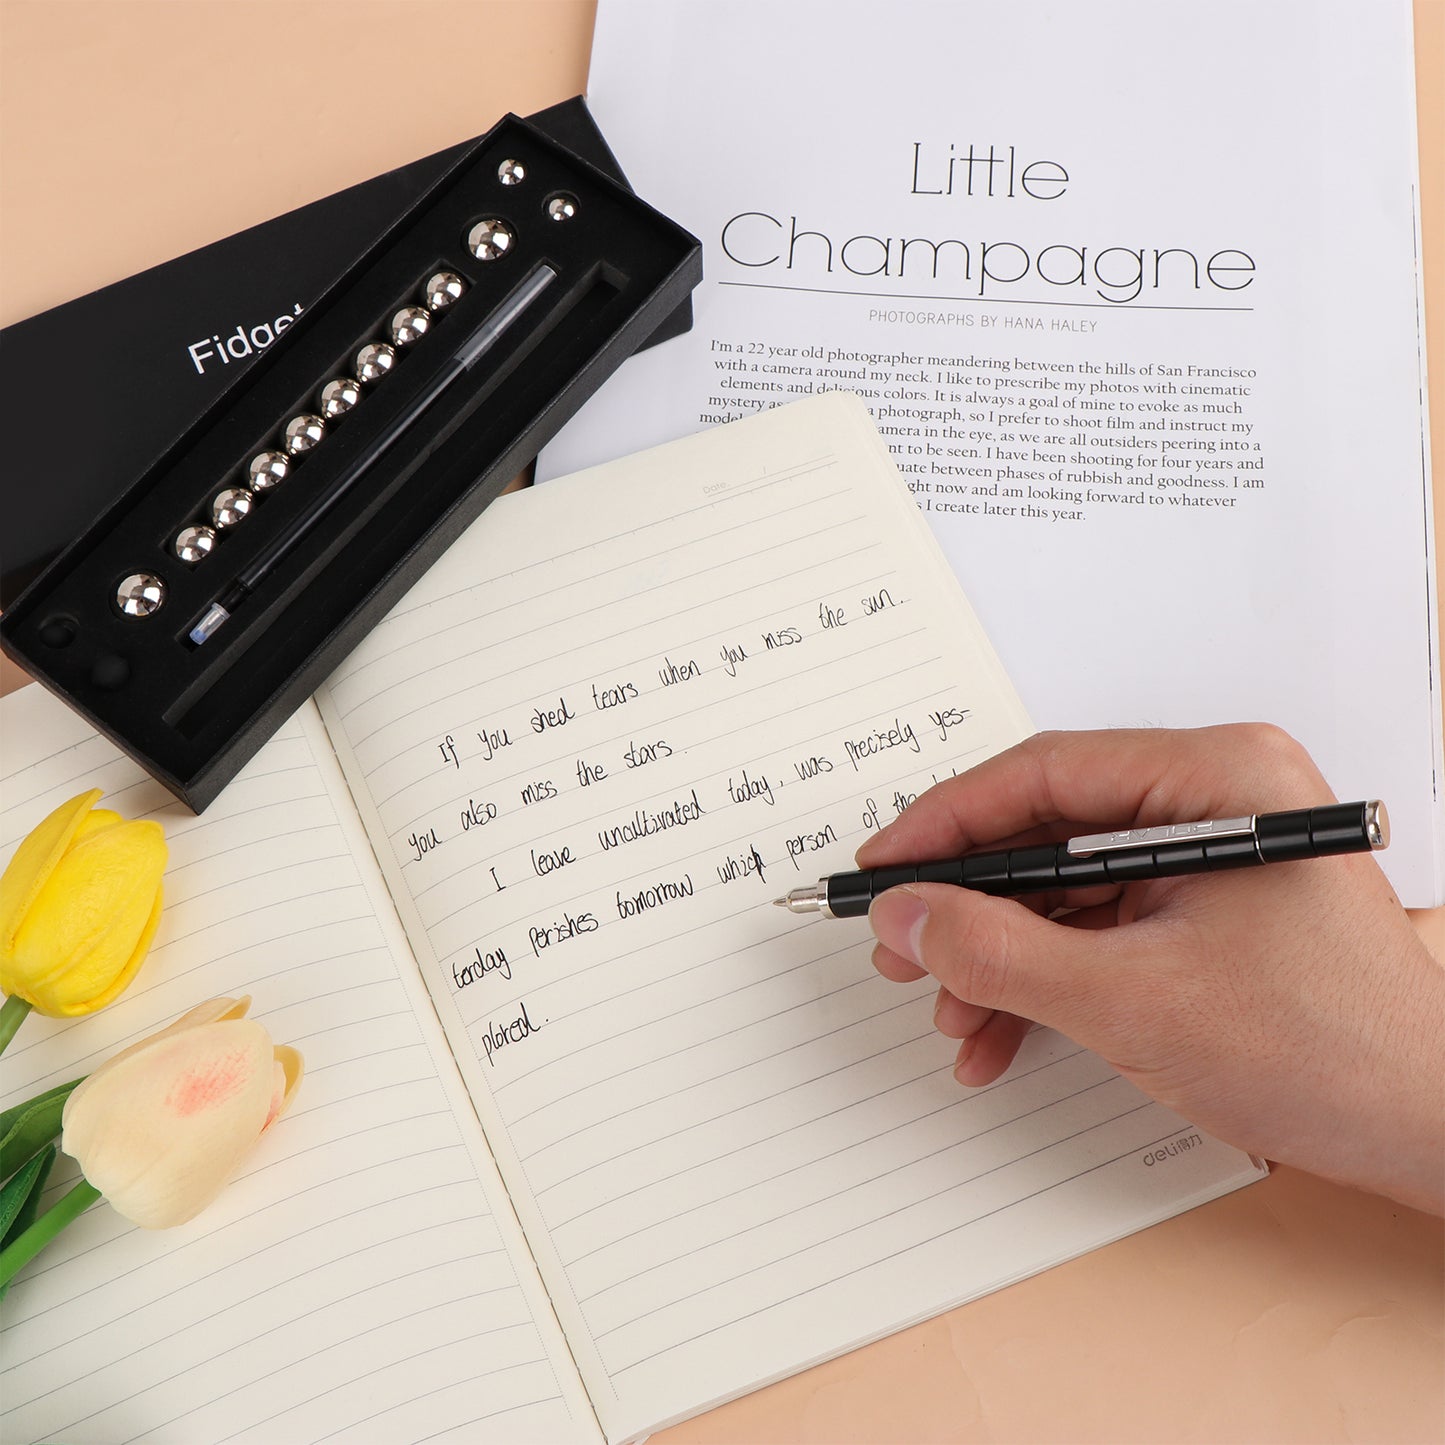 Little
Champagne
PHOTOGRAPHS BY HANA HALEY
I'm a 22 year old photographer meandering between the hills of San Francisco
with a camera around my neck. I like to prescribe my photos with cinematic
elements and delicious colors. It is always a goal of mine to evoke as much
mystery as a photograph, so I prefer to shoot film and instruct my
camera in the eye, as we are all outsiders peering into a
to be seen. I have been shooting for four years and
between phases of rubbish and goodness. I am
now and am looking forward to whatever
I create later this year.
Fidget
Date.
If you shed tears when you miss the sun.
you also miss the stars.
I leave uncultivated today, was precisely yes-
terday perishes tomorrow which person of the
plored.
deli得力